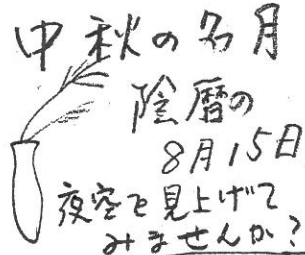 中秋の名月
陰暦の
8月15日
夜空を見上げて
みませんか?